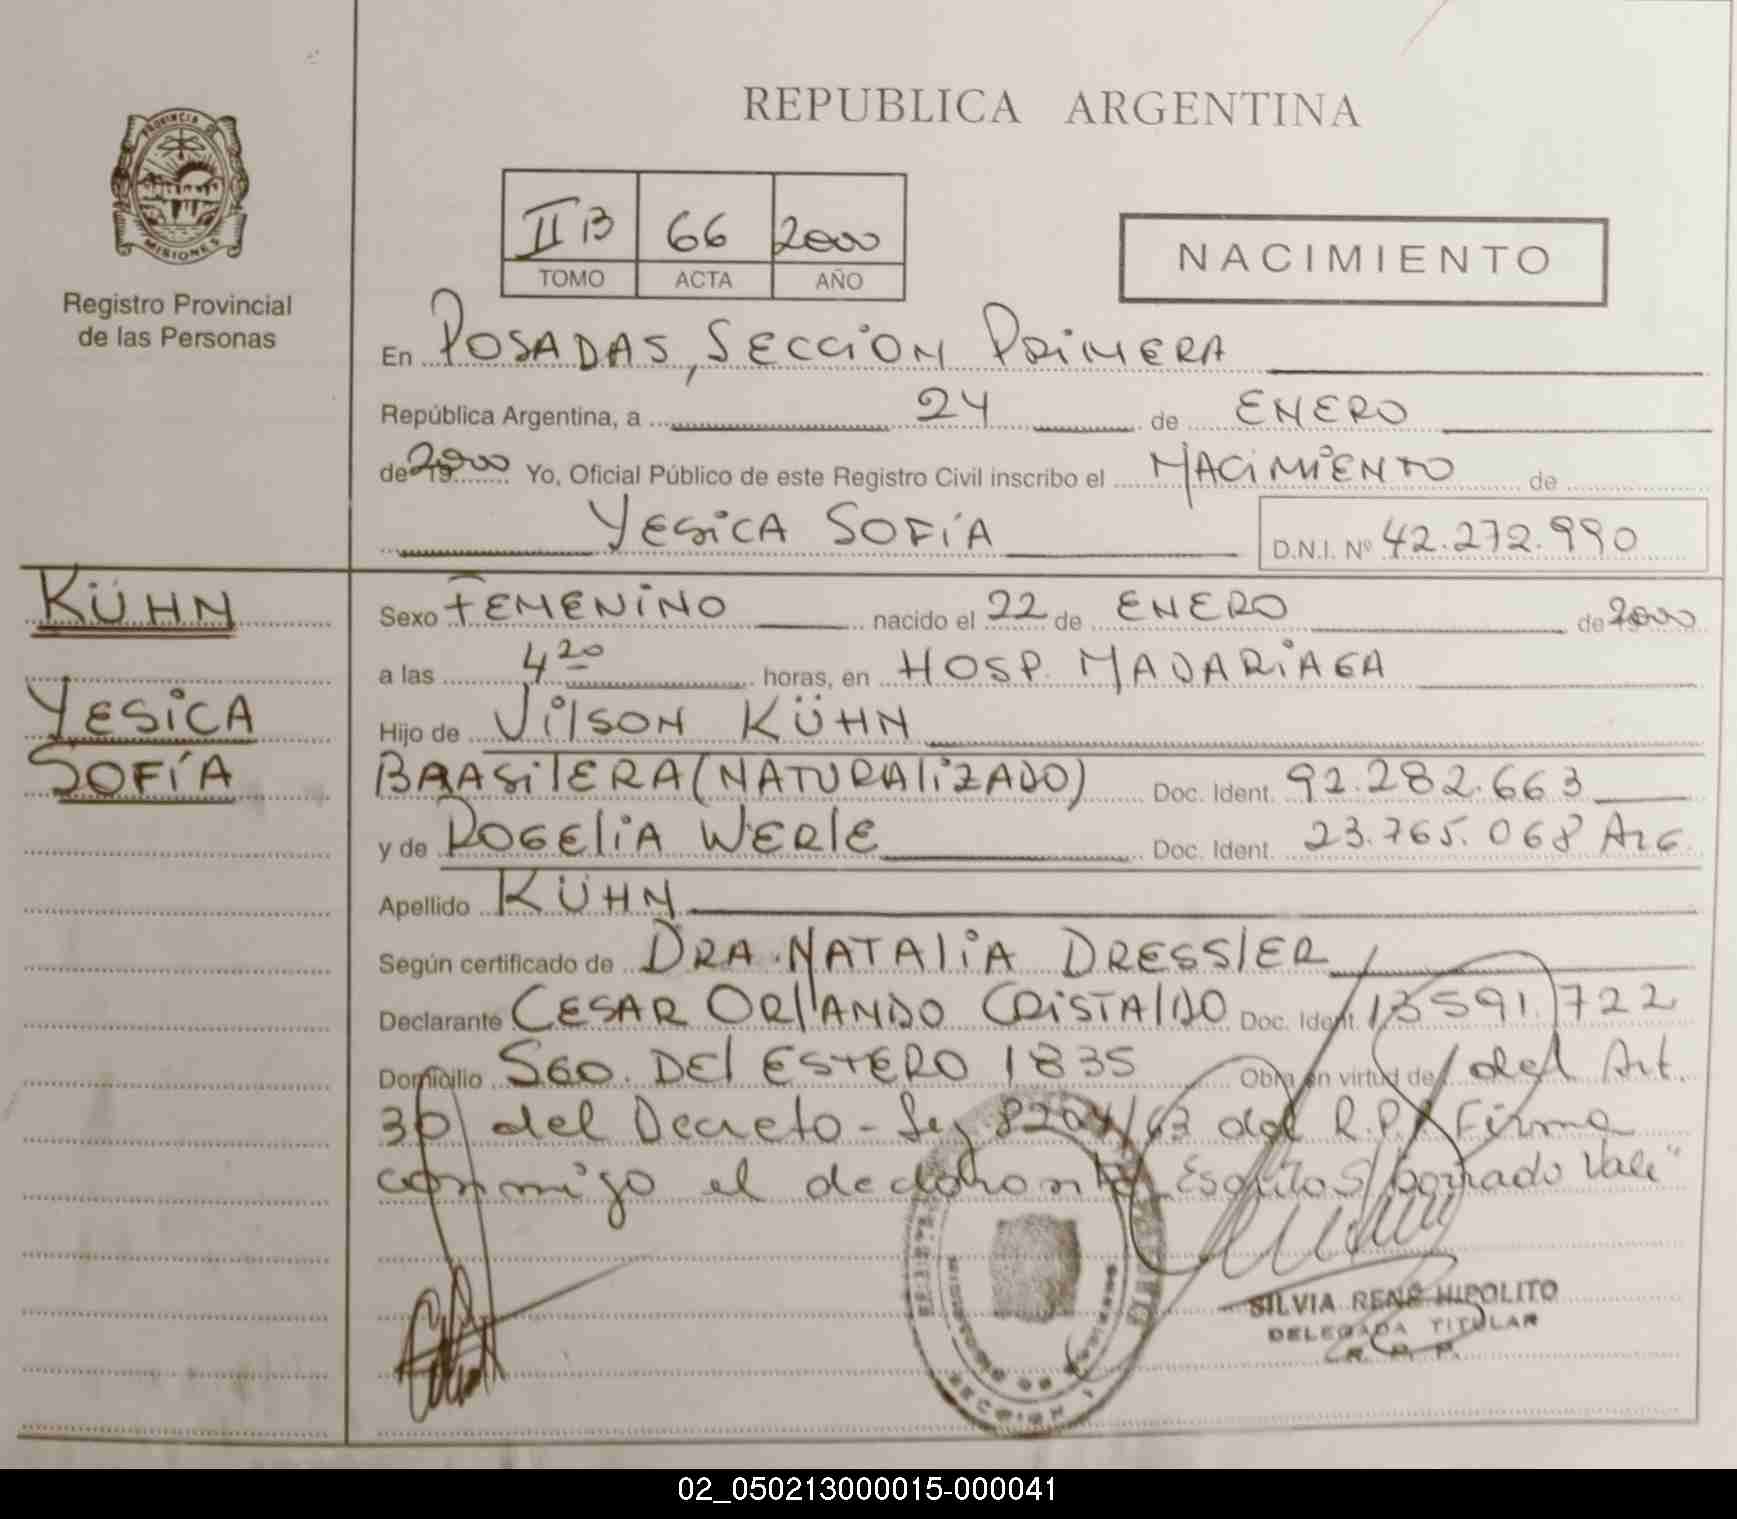 PROVINCIA DE
MISIONES
Registro Provincial
de las Personas
REPUBLICA ARGENTINA
II B 66 2000
TOMO ACTA AÑO
NACIMIENTO
En POSADAS, SECCION PRIMERA
República Argentina, a 24 de ENERO
de 2000 Yo, Oficial Público de este Registro Civil inscribo el NACIMIENTO de
YESICA SOFÍA D.N.I. Nº 42.272.990
KÜHN
YESICA
SOFÍA
Sexo FEMENINO nacido el 22 de ENERO de 2000
a las 4 20 horas, en HOSP. MADARIAGA
Hijo de VilSON KÜHN
BRASilERA (NATURAliZADO) Doc. Ident. 92.282.663
y de ROGEliA WERlE Doc. Ident. 23.765.068 ARG.
Apellido KÜHN
Según certificado de DRA. NATAliA DRESSlER
Declarante CESAR ORlANDO CRISTAlDO Doc. Ident. 13591.722
Domicilio SGO. DEl ESTERO 1835 Obra en virtud de del Art.
30 del Decreto-Ley 8204/63 del R.P. Firma
conmigo el declarante S/borrado Vale"
SECCION 1
SILVIA RENÉ HIPOLITO
DELEGADA TITULAR
R. P. P.
02_050213000015-000041